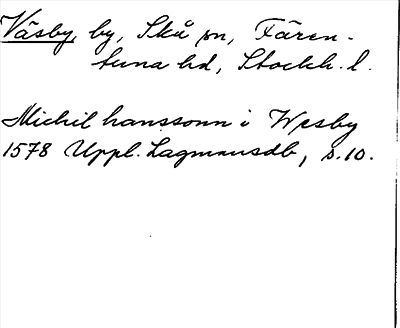 Väsby, by, Skå sn, Fären-
tuna hd, Stockh. l.
Michil hanssonn i Wesby
1578 Uppl. Lagmansdb, s. 10.